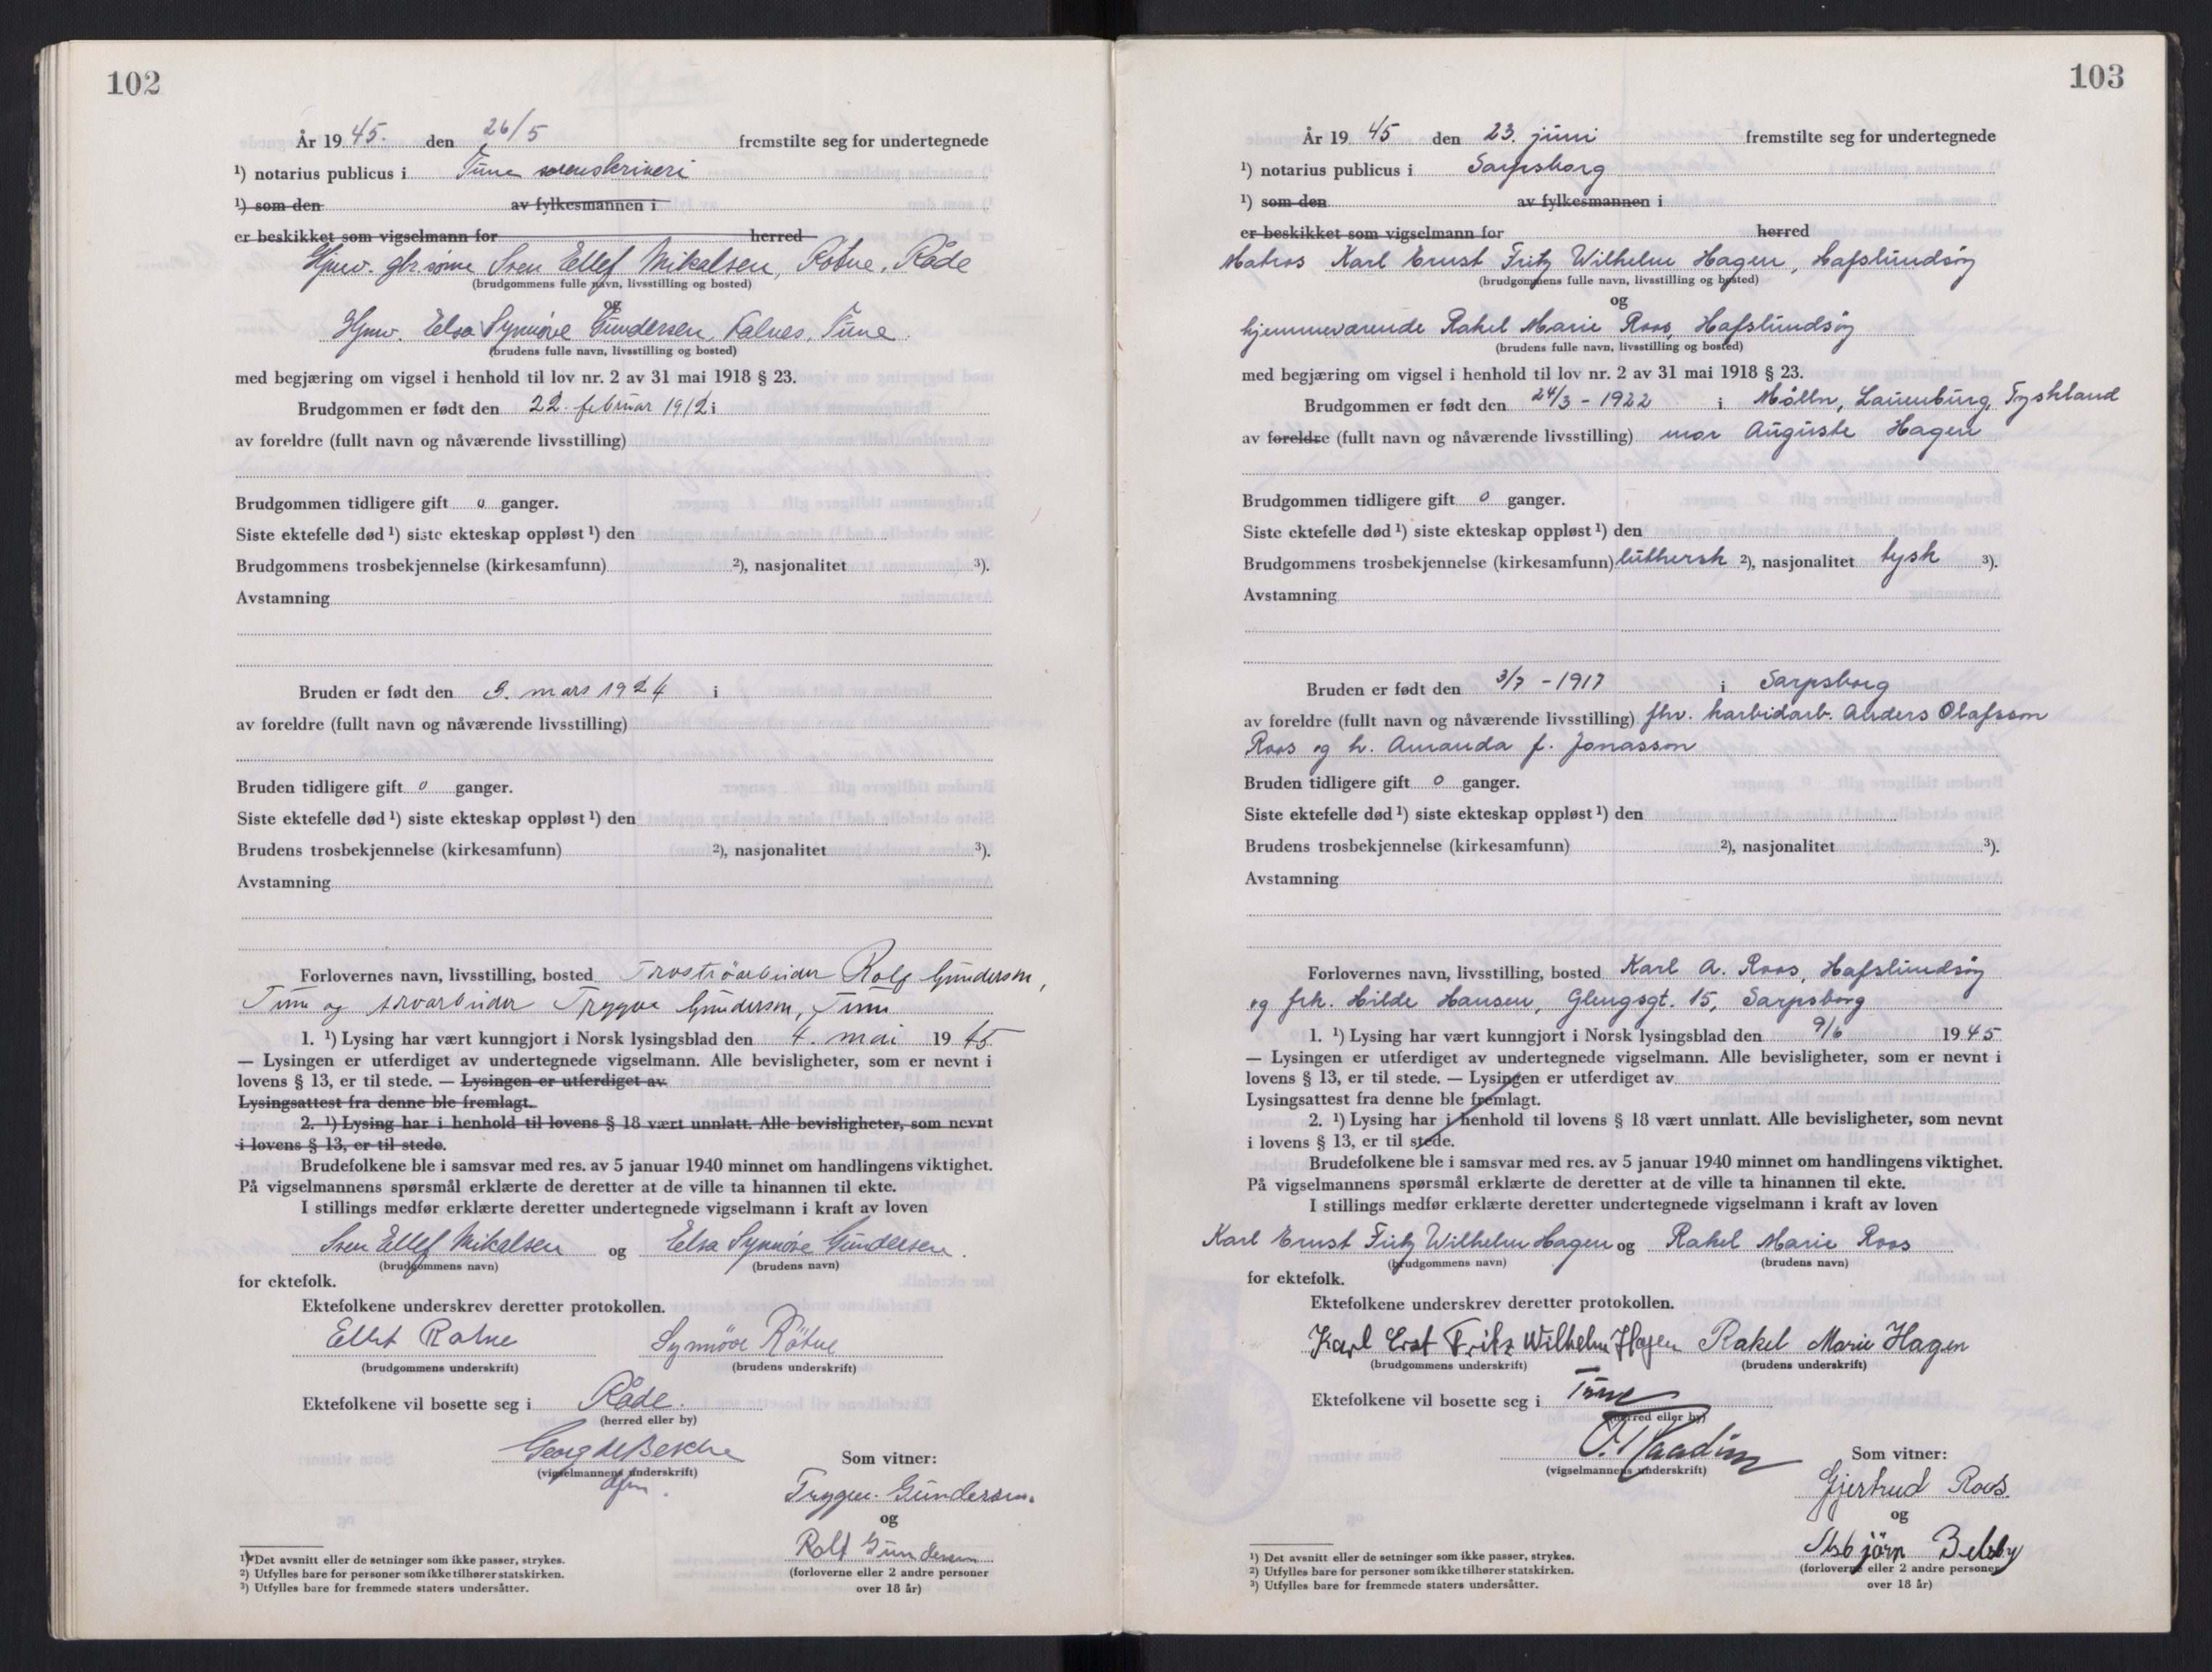 102
År 19 45. den 26/5 fremstilte seg for undertegnede
¹) notarius publicus i Tune sorenskriveri
¹) som den av fylkesmannen i
er beskikket som vigselmann for herred
Hjmv. gbr.sønn Sven Ellef Mikalsen, Rötne, Råde
(brudgommens fulle navn, livsstilling og bosted)
og
Hjmv. Elsa Synnöve Gundersen, Kalnes, Tune.
(brudens fulle navn, livsstilling og bosted)
med begjæring om vigsel i henhold til lov nr. 2 av 31 mai 1918 § 23.
Brudgommen er født den 22. februar 1912 i
av foreldre (fullt navn og nåværende livsstilling)
Brudgommen tidligere gift 0 ganger.
Siste ektefelle død ¹) siste ekteskap oppløst ¹) den
Brudgommens trosbekjennelse (kirkesamfunn) ²), nasjonalitet ³).
Avstamning
Bruden er født den 9. mars 1924 i
av foreldre (fullt navn og nåværende livsstilling)
Bruden tidligere gift 0 ganger.
Siste ektefelle død ¹) siste ekteskap oppløst ¹) den
Brudens trosbekjennelse (kirkesamfunn) ²), nasjonalitet ³).
Avstamning
Forlovernes navn, livsstilling, bosted Rolf Gundersen,
Tune og Trygve Gundersen, Tune
1. ¹) Lysing har vært kunngjort i Norsk lysingsblad den 4. mai 19 45
— Lysingen er utferdiget av undertegnede vigselmann. Alle bevisligheter, som er nevnt i
lovens § 13, er til stede. — Lysingen er utferdiget av
Lysingsattest fra denne ble fremlagt.
2. ¹) Lysing har i henhold til lovens § 18 vært unnlatt. Alle bevisligheter, som nevnt
i lovens § 13, er til stede.
Brudefolkene ble i samsvar med res. av 5 januar 1940 minnet om handlingens viktighet.
På vigselmannens spørsmål erklærte de deretter at de ville ta hinannen til ekte.
I stillings medfør erklærte deretter undertegnede vigselmann i kraft av loven
Sven Ellef Mikalsen og Elsa Synnöve Gundersen.
(brudgommens navn) (brudens navn)
for ektefolk.
Ektefolkene underskrev deretter protokollen.
Ellef Rötne Synnöve Rötne
(brudgommens underskrift) (brudens underskrift)
Ektefolkene vil bosette seg i Råde.
(herred eller by)
Georg de Besche
(vigselmannens underskrift)
Som vitner:
Trygve Gundersen.
og
Rolf Gundersen
(forloverne eller 2 andre personer
over 18 år)
¹) Det avsnitt eller de setninger som ikke passer, strykes.
²) Utfylles bare for personer som ikke tilhører statskirken.
³) Utfylles bare for fremmede staters undersåtter.
103
År 19 45 den 23. juni fremstilte seg for undertegnede
¹) notarius publicus i Sarpsborg
¹) som den av fylkesmannen i
er beskikket som vigselmann for herred
Matros Karl Ernst Fritz Wilhelm Hagen, Hafslundsøy
(brudgommens fulle navn, livsstilling og bosted)
og
hjemmeværende Rakel Marie Roos, Hafslundsøy
(brudens fulle navn, livsstilling og bosted)
med begjæring om vigsel i henhold til lov nr. 2 av 31 mai 1918 § 23.
Brudgommen er født den 24/3 - 1922 i Mölln, Lauenburg, Tyskland
av foreldre (fullt navn og nåværende livsstilling) mor Auguste Hagen
Brudgommen tidligere gift 0 ganger.
Siste ektefelle død ¹) siste ekteskap oppløst ¹) den
Brudgommens trosbekjennelse (kirkesamfunn) luthersk ²), nasjonalitet tysk ³).
Avstamning
Bruden er født den 3/7 - 1917 i Sarpsborg
av foreldre (fullt navn og nåværende livsstilling) fhv. karbidarb. Anders Olafsson
Roos og h. Amanda f. Jonasson
Bruden tidligere gift 0 ganger.
Siste ektefelle død ¹) siste ekteskap oppløst ¹) den
Brudens trosbekjennelse (kirkesamfunn) ²), nasjonalitet ³).
Avstamning
Forlovernes navn, livsstilling, bosted Karl A. Roos, Hafslundsøy
og frk. Hilde Hansen, Glengsgt. 15, Sarpsborg
1. ¹) Lysing har vært kunngjort i Norsk lysingsblad den 9/6 19 45
— Lysingen er utferdiget av undertegnede vigselmann. Alle bevisligheter, som er nevnt i
lovens § 13, er til stede. — Lysingen er utferdiget av
Lysingsattest fra denne ble fremlagt.
2. ¹) Lysing har i henhold til lovens § 18 vært unnlatt. Alle bevisligheter, som nevnt
i lovens § 13, er til stede.
Brudefolkene ble i samsvar med res. av 5 januar 1940 minnet om handlingens viktighet.
På vigselmannens spørsmål erklærte de deretter at de ville ta hinannen til ekte.
I stillings medfør erklærte deretter undertegnede vigselmann i kraft av loven
Karl Ernst Fritz Wilhelm Hagen og Rakel Marie Roos
(brudgommens navn) (brudens navn)
for ektefolk.
Ektefolkene underskrev deretter protokollen.
Karl Erst Fritz Wilhelm Hagen Rakel Marie Hagen
(brudgommens underskrift) (brudens underskrift)
Ektefolkene vil bosette seg i Tune
(herred eller by)
(vigselmannens underskrift)
Som vitner:
Gjertrud Roos.
og
Asbjörn Belsby
(forloverne eller 2 andre personer
over 18 år)
¹) Det avsnitt eller de setninger som ikke passer, strykes.
²) Utfylles bare for personer som ikke tilhører statskirken.
³) Utfylles bare for fremmede staters undersåtter.